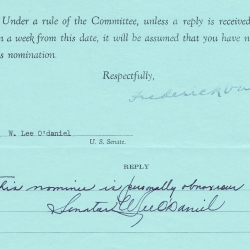 Under a rule of the Committee, unless a reply is received
n a week from this date, it will be assumed that you have n
s nomination.
Respectfully,
Frederick Va
W. Lee O'daniel
U. S. Senate.
REPLY
This nominie is personally obnoxious
Senator W Lee O'Daniel